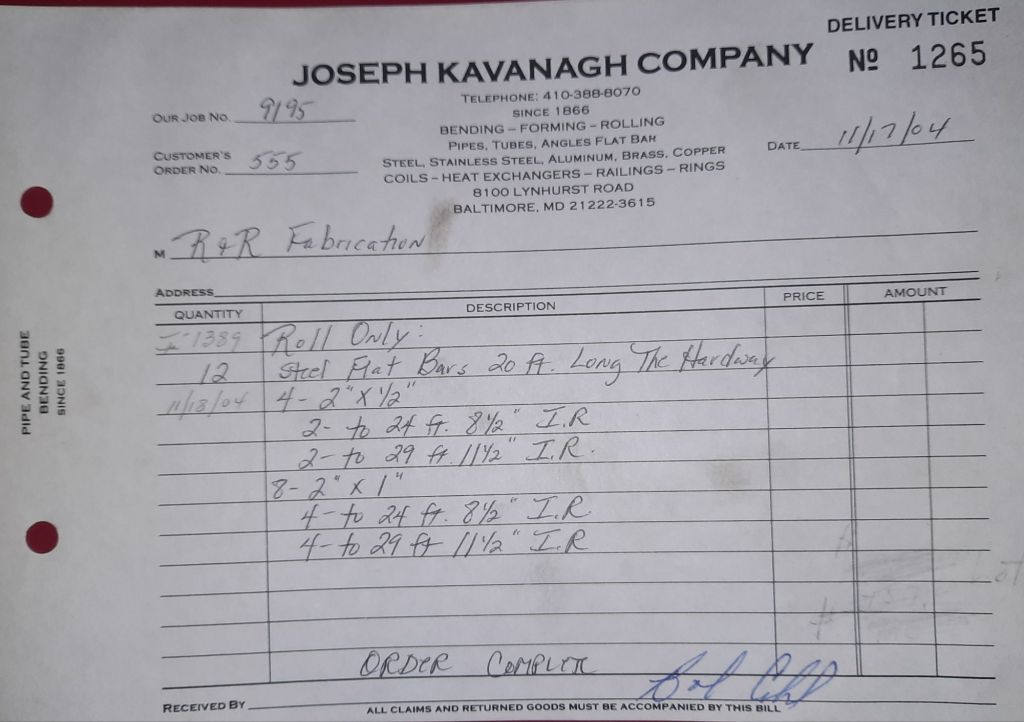 DELIVERY TICKET
№ 1265
JOSEPH KAVANAGH COMPANY
TELEPHONE: 410-388-8070
SINCE 1866
BENDING – FORMING – ROLLING
PIPES, TUBES, ANGLES FLAT BAR
STEEL, STAINLESS STEEL, ALUMINUM, BRASS, COPPER
COILS – HEAT EXCHANGERS – RAILINGS – RINGS
8100 LYNHURST ROAD
BALTIMORE, MD 21222-3615
OUR JOB NO. 9195
CUSTOMER'S
ORDER NO. 555
DATE 11/17/04
M R & R Fabrication
ADDRESS
QUANTITY DESCRIPTION PRICE AMOUNT
1389 Roll Only:
12 Steel Flat Bars 20 ft. Long The Hardway
11/18/04 4- 2" X 1/2"
2- to 24 ft. 8 1/2" I.R
2- to 29 ft. 11 1/2" I.R.
8- 2" X 1"
4- to 24 ft. 8 1/2" I.R.
4- to 29 ft 11 1/2" I.R
ORDER COMPLETE
RECEIVED BY
ALL CLAIMS AND RETURNED GOODS MUST BE ACCOMPANIED BY THIS BILL
PIPE AND TUBE
BENDING
SINCE 1866